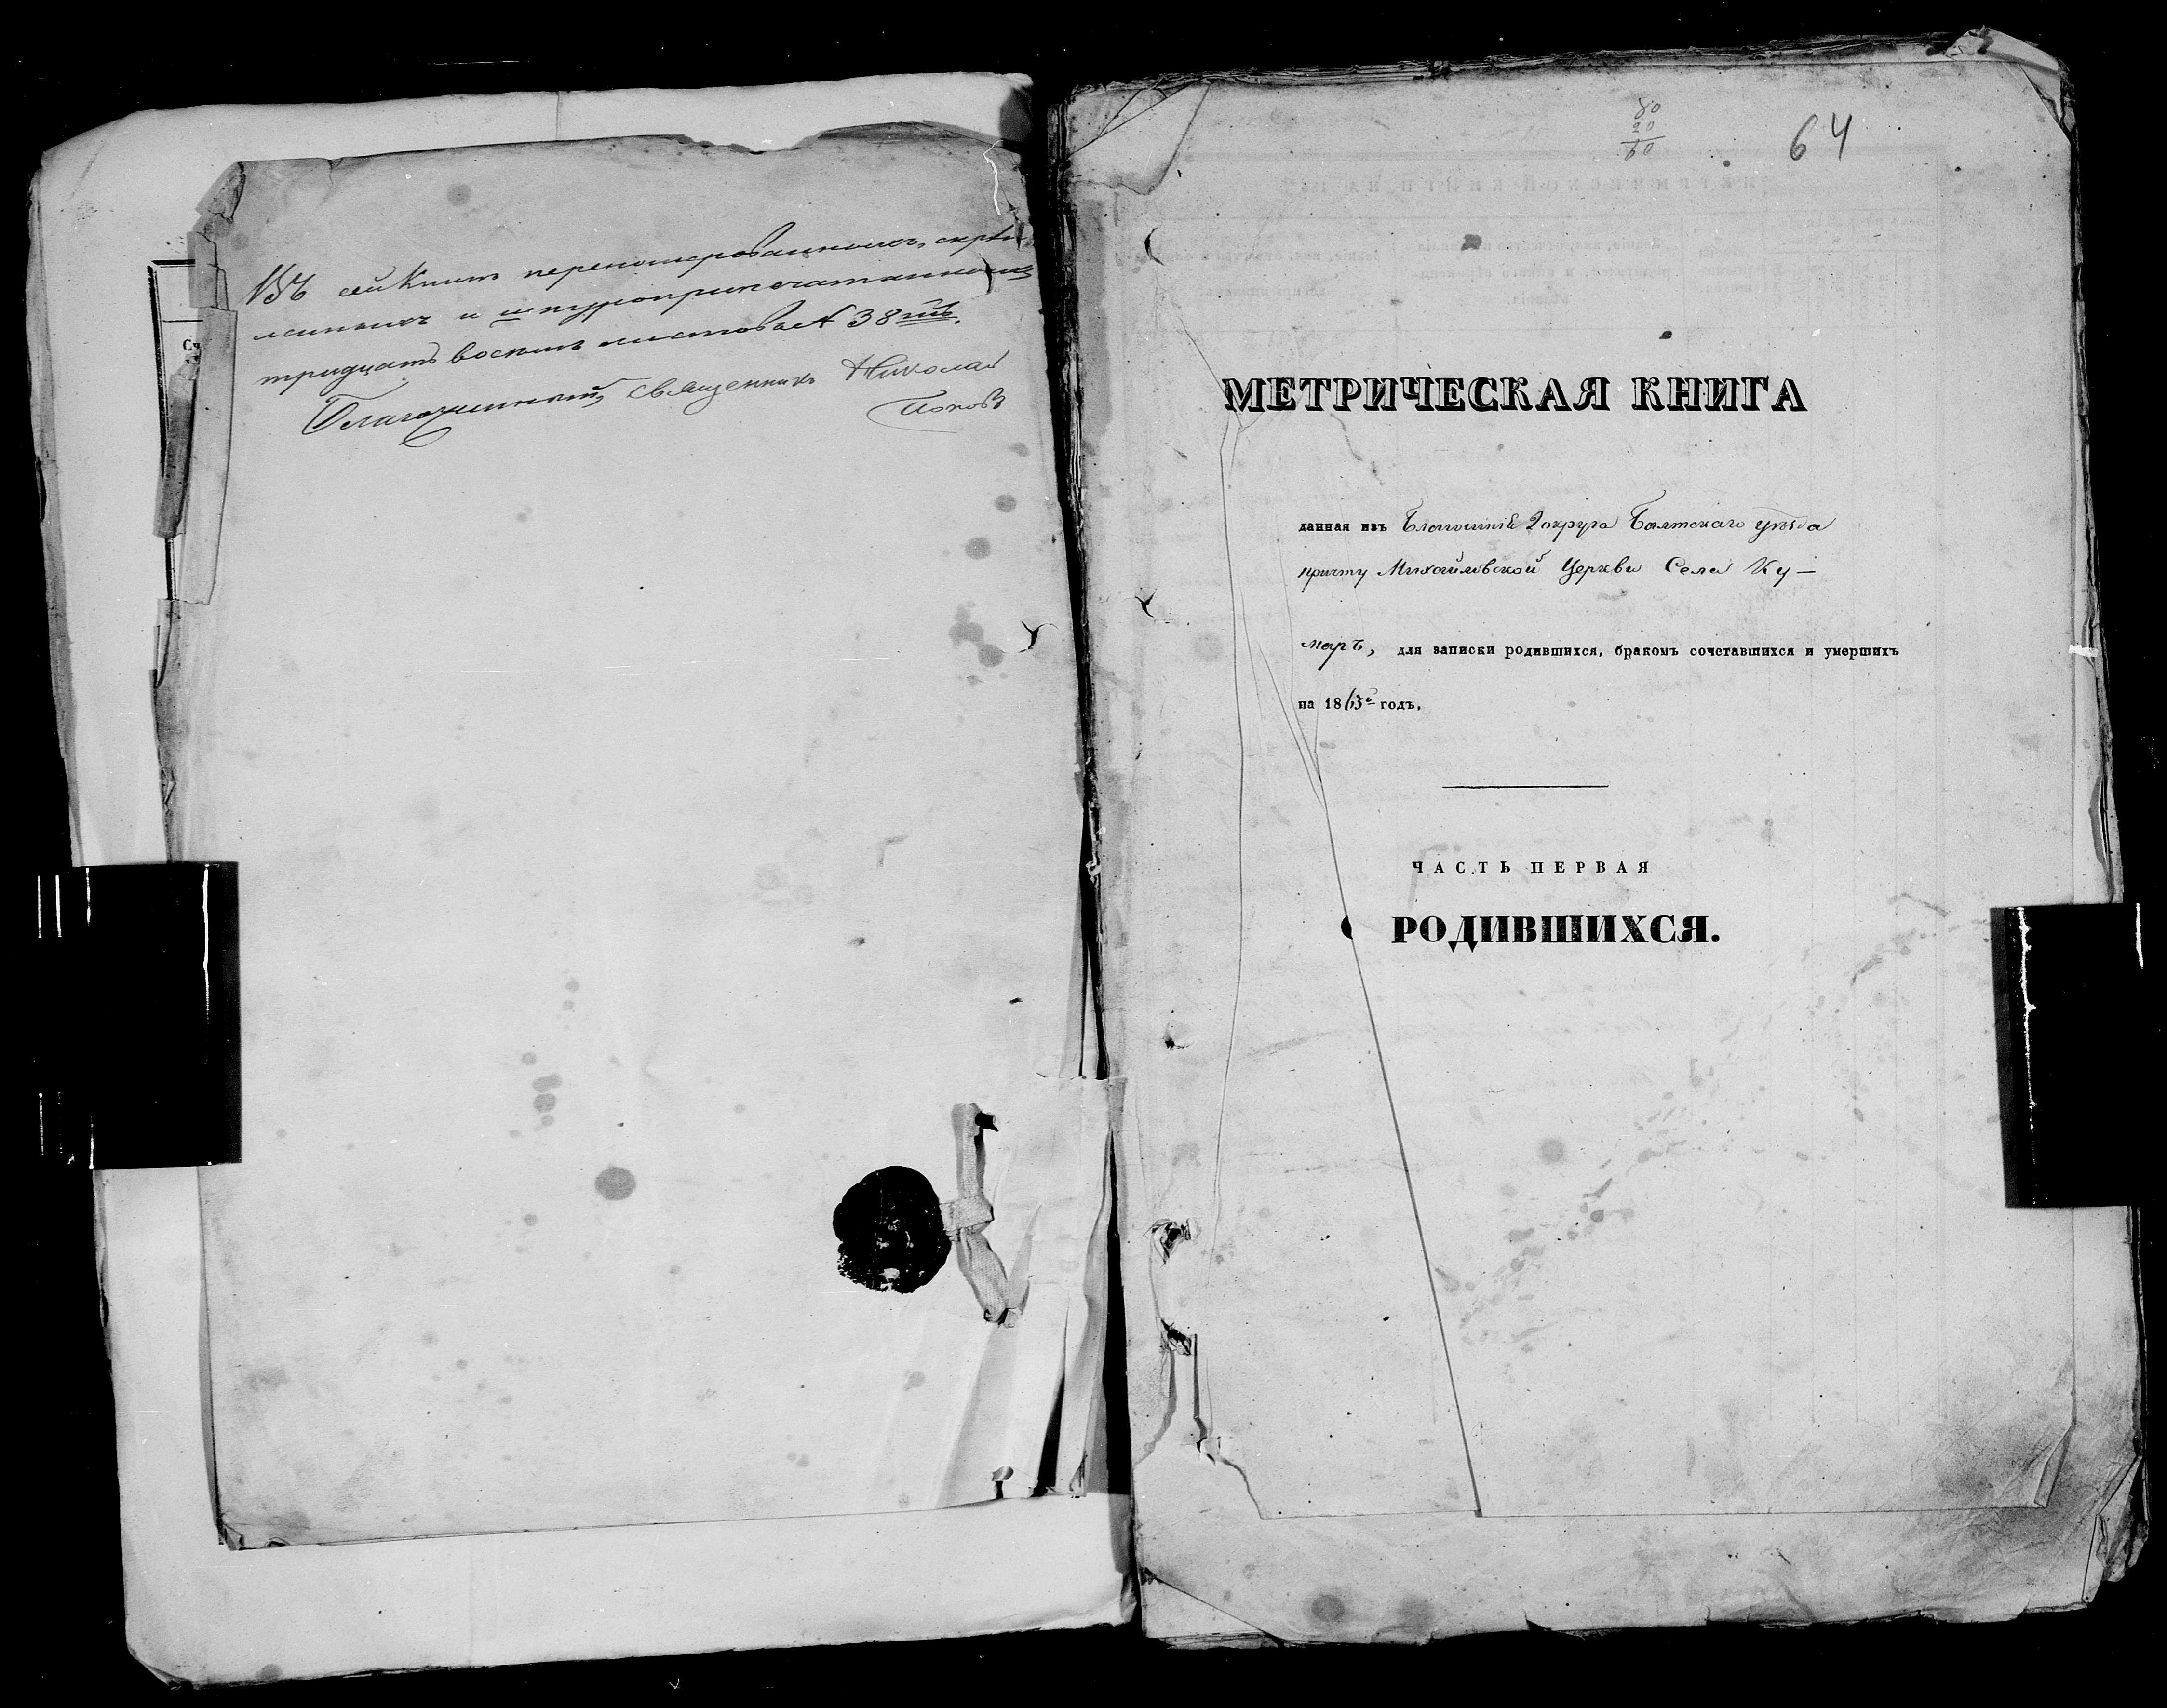 Въ сей Книгѣ перенумерованныхъ, скрѣп-
ленныхъ и шнуроприпечатанныхъ
тридцать восемь листовъ 38мь.
Благочинный, священникъ Николай
Поповъ
Сч
80
20
60
64
МЕТРИЧЕСКАЯ КНИГА
данная изъ 2 округа Балтскаго уѣзда
причту Михайловской Церкви Села Ку-
маръ, для записки родившихся, бракомъ сочетавшихся и умершихъ
на 1863й годъ.
ЧАСТЬ ПЕРВАЯ
РОДИВШИХСЯ.